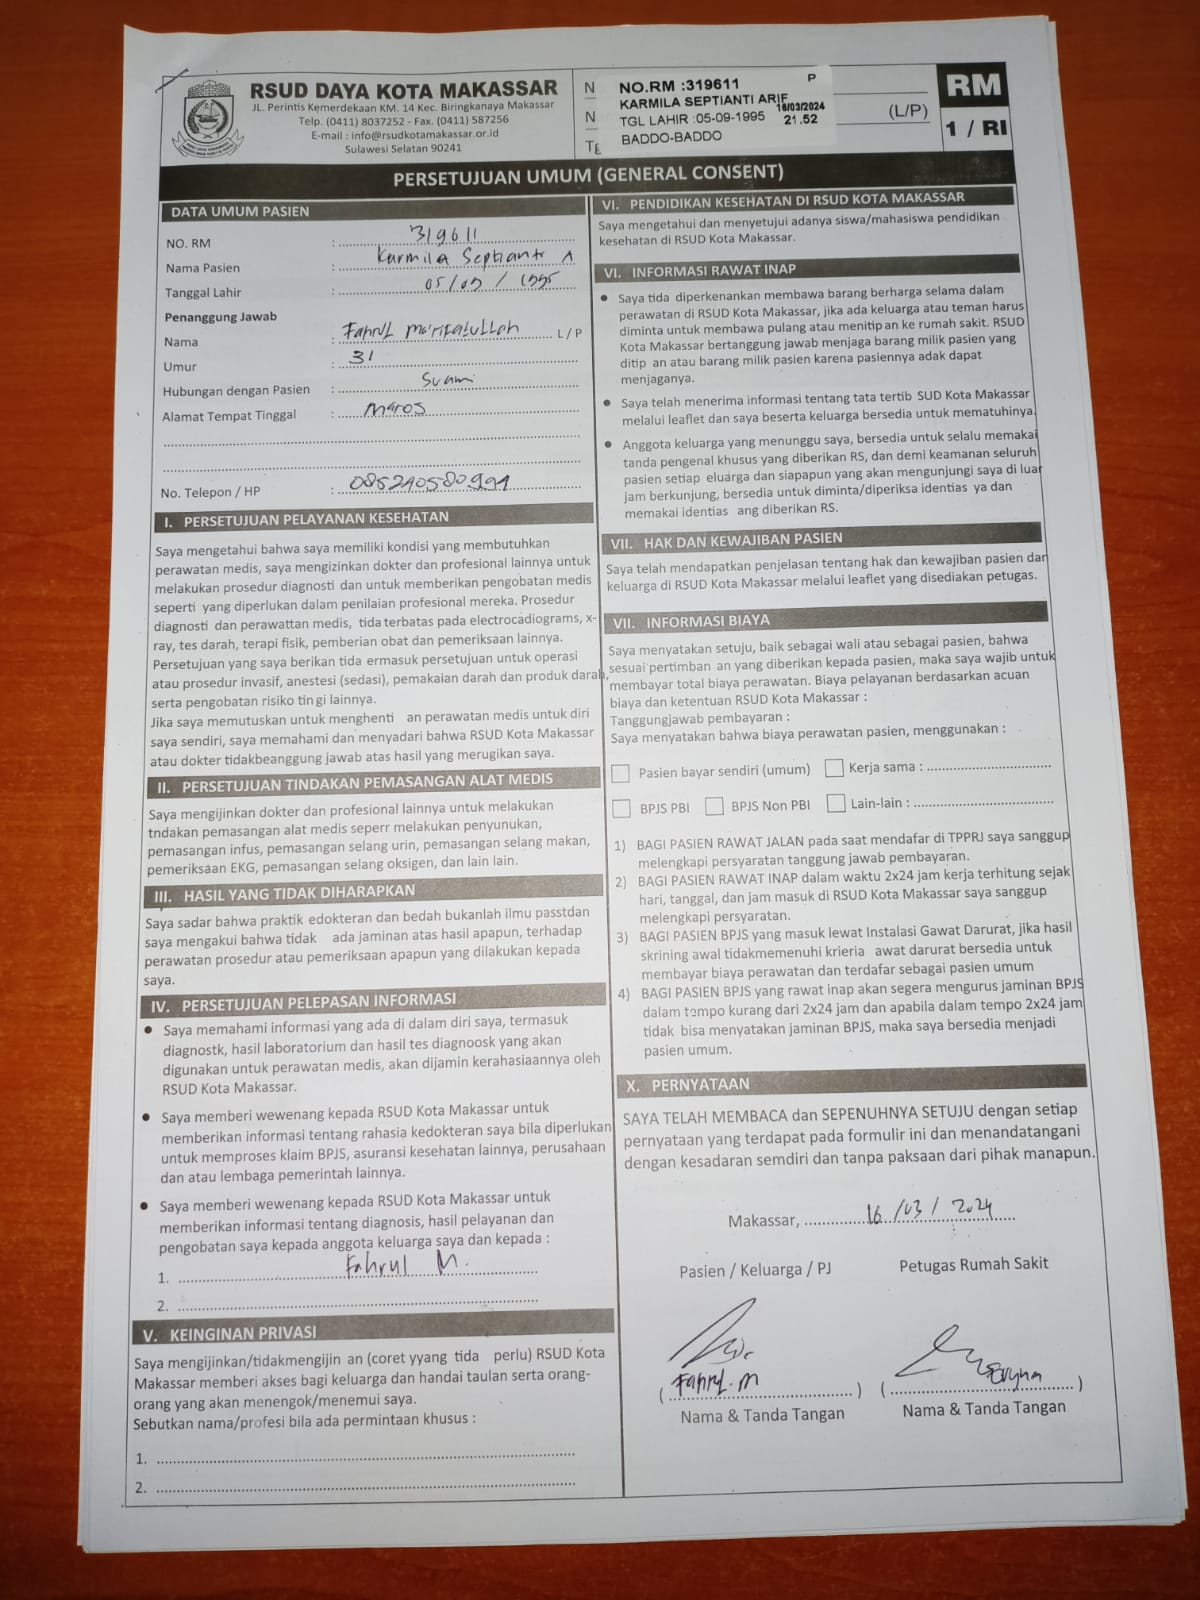 RSUD DAYA KOTA MAKASSAR
JL. Perintis Kemerdekaan KM. 14 Kec. Biringkanaya Makassar
Telp. (0411) 8037252 - Fax. (0411) 587256
E-mail : info@rsudkotamakassar.or.id
Sulawesi Selatan 90241
NO.RM :319611 P
KARMILA SEPTIANTI ARIF
16/03/2024
TGL LAHIR :05-09-1995 21.52
BADDO-BADDO
(L/P)
RM
1 / RI
PERSETUJUAN UMUM (GENERAL CONSENT)
DATA UMUM PASIEN
NO. RM : 319611
Nama Pasien : Karmila Septianti A
Tanggal Lahir : 05/09/1995
Penanggung Jawab
Nama : Fahrul Ma'rifatullah L / P
Umur : 31
Hubungan dengan Pasien : Suami
Alamat Tempat Tinggal : Maros
No. Telepon / HP : 085240580991
I. PERSETUJUAN PELAYANAN KESEHATAN
Saya mengetahui bahwa saya memiliki kondisi yang membutuhkan
perawatan medis, saya mengizinkan dokter dan profesional lainnya untuk
melakukan prosedur diagnosti dan untuk memberikan pengobatan medis
seperti yang diperlukan dalam penilaian profesional mereka. Prosedur
diagnosti dan perawattan medis, tida terbatas pada electrocadiograms, x-
ray, tes darah, terapi fisik, pemberian obat dan pemeriksaan lainnya.
Persetujuan yang saya berikan tida ermasuk persetujuan untuk operasi
atau prosedur invasif, anestesi (sedasi), pemakaian darah dan produk darah,
serta pengobatan risiko tin gi lainnya.
Jika saya memutuskan untuk menghenti an perawatan medis untuk diri
saya sendiri, saya memahami dan menyadari bahwa RSUD Kota Makassar
atau dokter tidakbeanggung jawab atas hasil yang merugikan saya.
II. PERSETUJUAN TINDAKAN PEMASANGAN ALAT MEDIS
Saya mengijinkan dokter dan profesional lainnya untuk melakukan
tndakan pemasangan alat medis seperr melakukan penyunukan,
pemasangan infus, pemasangan selang urin, pemasangan selang makan,
pemeriksaan EKG, pemasangan selang oksigen, dan lain lain.
III. HASIL YANG TIDAK DIHARAPKAN
Saya sadar bahwa praktik edokteran dan bedah bukanlah ilmu passtdan
saya mengakui bahwa tidak ada jaminan atas hasil apapun, terhadap
perawatan prosedur atau pemeriksaan apapun yang dilakukan kepada
saya.
IV. PERSETUJUAN PELEPASAN INFORMASI
● Saya memahami informasi yang ada di dalam diri saya, termasuk
diagnostk, hasil laboratorium dan hasil tes diagnoosk yang akan
digunakan untuk perawatan medis, akan dijamin kerahasiaannya oleh
RSUD Kota Makassar.
● Saya memberi wewenang kepada RSUD Kota Makassar untuk
memberikan informasi tentang rahasia kedokteran saya bila diperlukan
untuk memproses klaim BPJS, asuransi kesehatan lainnya, perusahaan
dan atau lembaga pemerintah lainnya.
● Saya memberi wewenang kepada RSUD Kota Makassar untuk
memberikan informasi tentang diagnosis, hasil pelayanan dan
pengobatan saya kepada anggota keluarga saya dan kepada :
1. Fahrul M.
2.
V. KEINGINAN PRIVASI
Saya mengijinkan/tidakmengijin an (coret yyang tida perlu) RSUD Kota
Makassar memberi akses bagi keluarga dan handai taulan serta orang-
orang yang akan menengok/menemui saya.
Sebutkan nama/profesi bila ada permintaan khusus :
1.
2.
VI. PENDIDIKAN KESEHATAN DI RSUD KOTA MAKASSAR
Saya mengetahui dan menyetujui adanya siswa/mahasiswa pendidikan
kesehatan di RSUD Kota Makassar.
VI. INFORMASI RAWAT INAP
● Saya tida diperkenankan membawa barang berharga selama dalam
perawatan di RSUD Kota Makassar, jika ada keluarga atau teman harus
diminta untuk membawa pulang atau menitip an ke rumah sakit. RSUD
Kota Makassar bertanggung jawab menjaga barang milik pasien yang
ditip an atau barang milik pasien karena pasiennya adak dapat
menjaganya.
● Saya telah menerima informasi tentang tata tertib SUD Kota Makassar
melalui leaflet dan saya beserta keluarga bersedia untuk mematuhinya.
● Anggota keluarga yang menunggu saya, bersedia untuk selalu memakai
tanda pengenal khusus yang diberikan RS, dan demi keamanan seluruh
pasien setiap eluarga dan siapapun yang akan mengunjungi saya di luar
jam berkunjung, bersedia untuk diminta/diperiksa identias ya dan
memakai identias ang diberikan RS.
VII. HAK DAN KEWAJIBAN PASIEN
Saya telah mendapatkan penjelasan tentang hak dan kewajiban pasien dan
keluarga di RSUD Kota Makassar melalui leaflet yang disediakan petugas.
VII. INFORMASI BIAYA
Saya menyatakan setuju, baik sebagai wali atau sebagai pasien, bahwa
sesuai pertimban an yang diberikan kepada pasien, maka saya wajib untuk
membayar total biaya perawatan. Biaya pelayanan berdasarkan acuan
biaya dan ketentuan RSUD Kota Makassar :
Tanggungjawab pembayaran :
Saya menyatakan bahwa biaya perawatan pasien, menggunakan :
Pasien bayar sendiri (umum) Kerja sama :
BPJS PBI BPJS Non PBI Lain-lain :
1) BAGI PASIEN RAWAT JALAN pada saat mendafar di TPPRJ saya sanggup
melengkapi persyaratan tanggung jawab pembayaran.
2) BAGI PASIEN RAWAT INAP dalam waktu 2x24 jam kerja terhitung sejak
hari, tanggal, dan jam masuk di RSUD Kota Makassar saya sanggup
melengkapi persyaratan.
3) BAGI PASIEN BPJS yang masuk lewat Instalasi Gawat Darurat, jika hasil
skrining awal tidakmemenuhi krieria awat darurat bersedia untuk
membayar biaya perawatan dan terdafar sebagai pasien umum
4) BAGI PASIEN BPJS yang rawat inap akan segera mengurus jaminan BPJS
dalam tempo kurang dari 2x24 jam dan apabila dalam tempo 2x24 jam
tidak bisa menyatakan jaminan BPJS, maka saya bersedia menjadi
pasien umum.
X. PERNYATAAN
SAYA TELAH MEMBACA dan SEPENUHNYA SETUJU dengan setiap
pernyataan yang terdapat pada formulir ini dan menandatangani
dengan kesadaran semdiri dan tanpa paksaan dari pihak manapun.
Makassar, 16/03/2024
Pasien / Keluarga / PJ Petugas Rumah Sakit
(Fahrul. M) ( )
Nama & Tanda Tangan Nama & Tanda Tangan